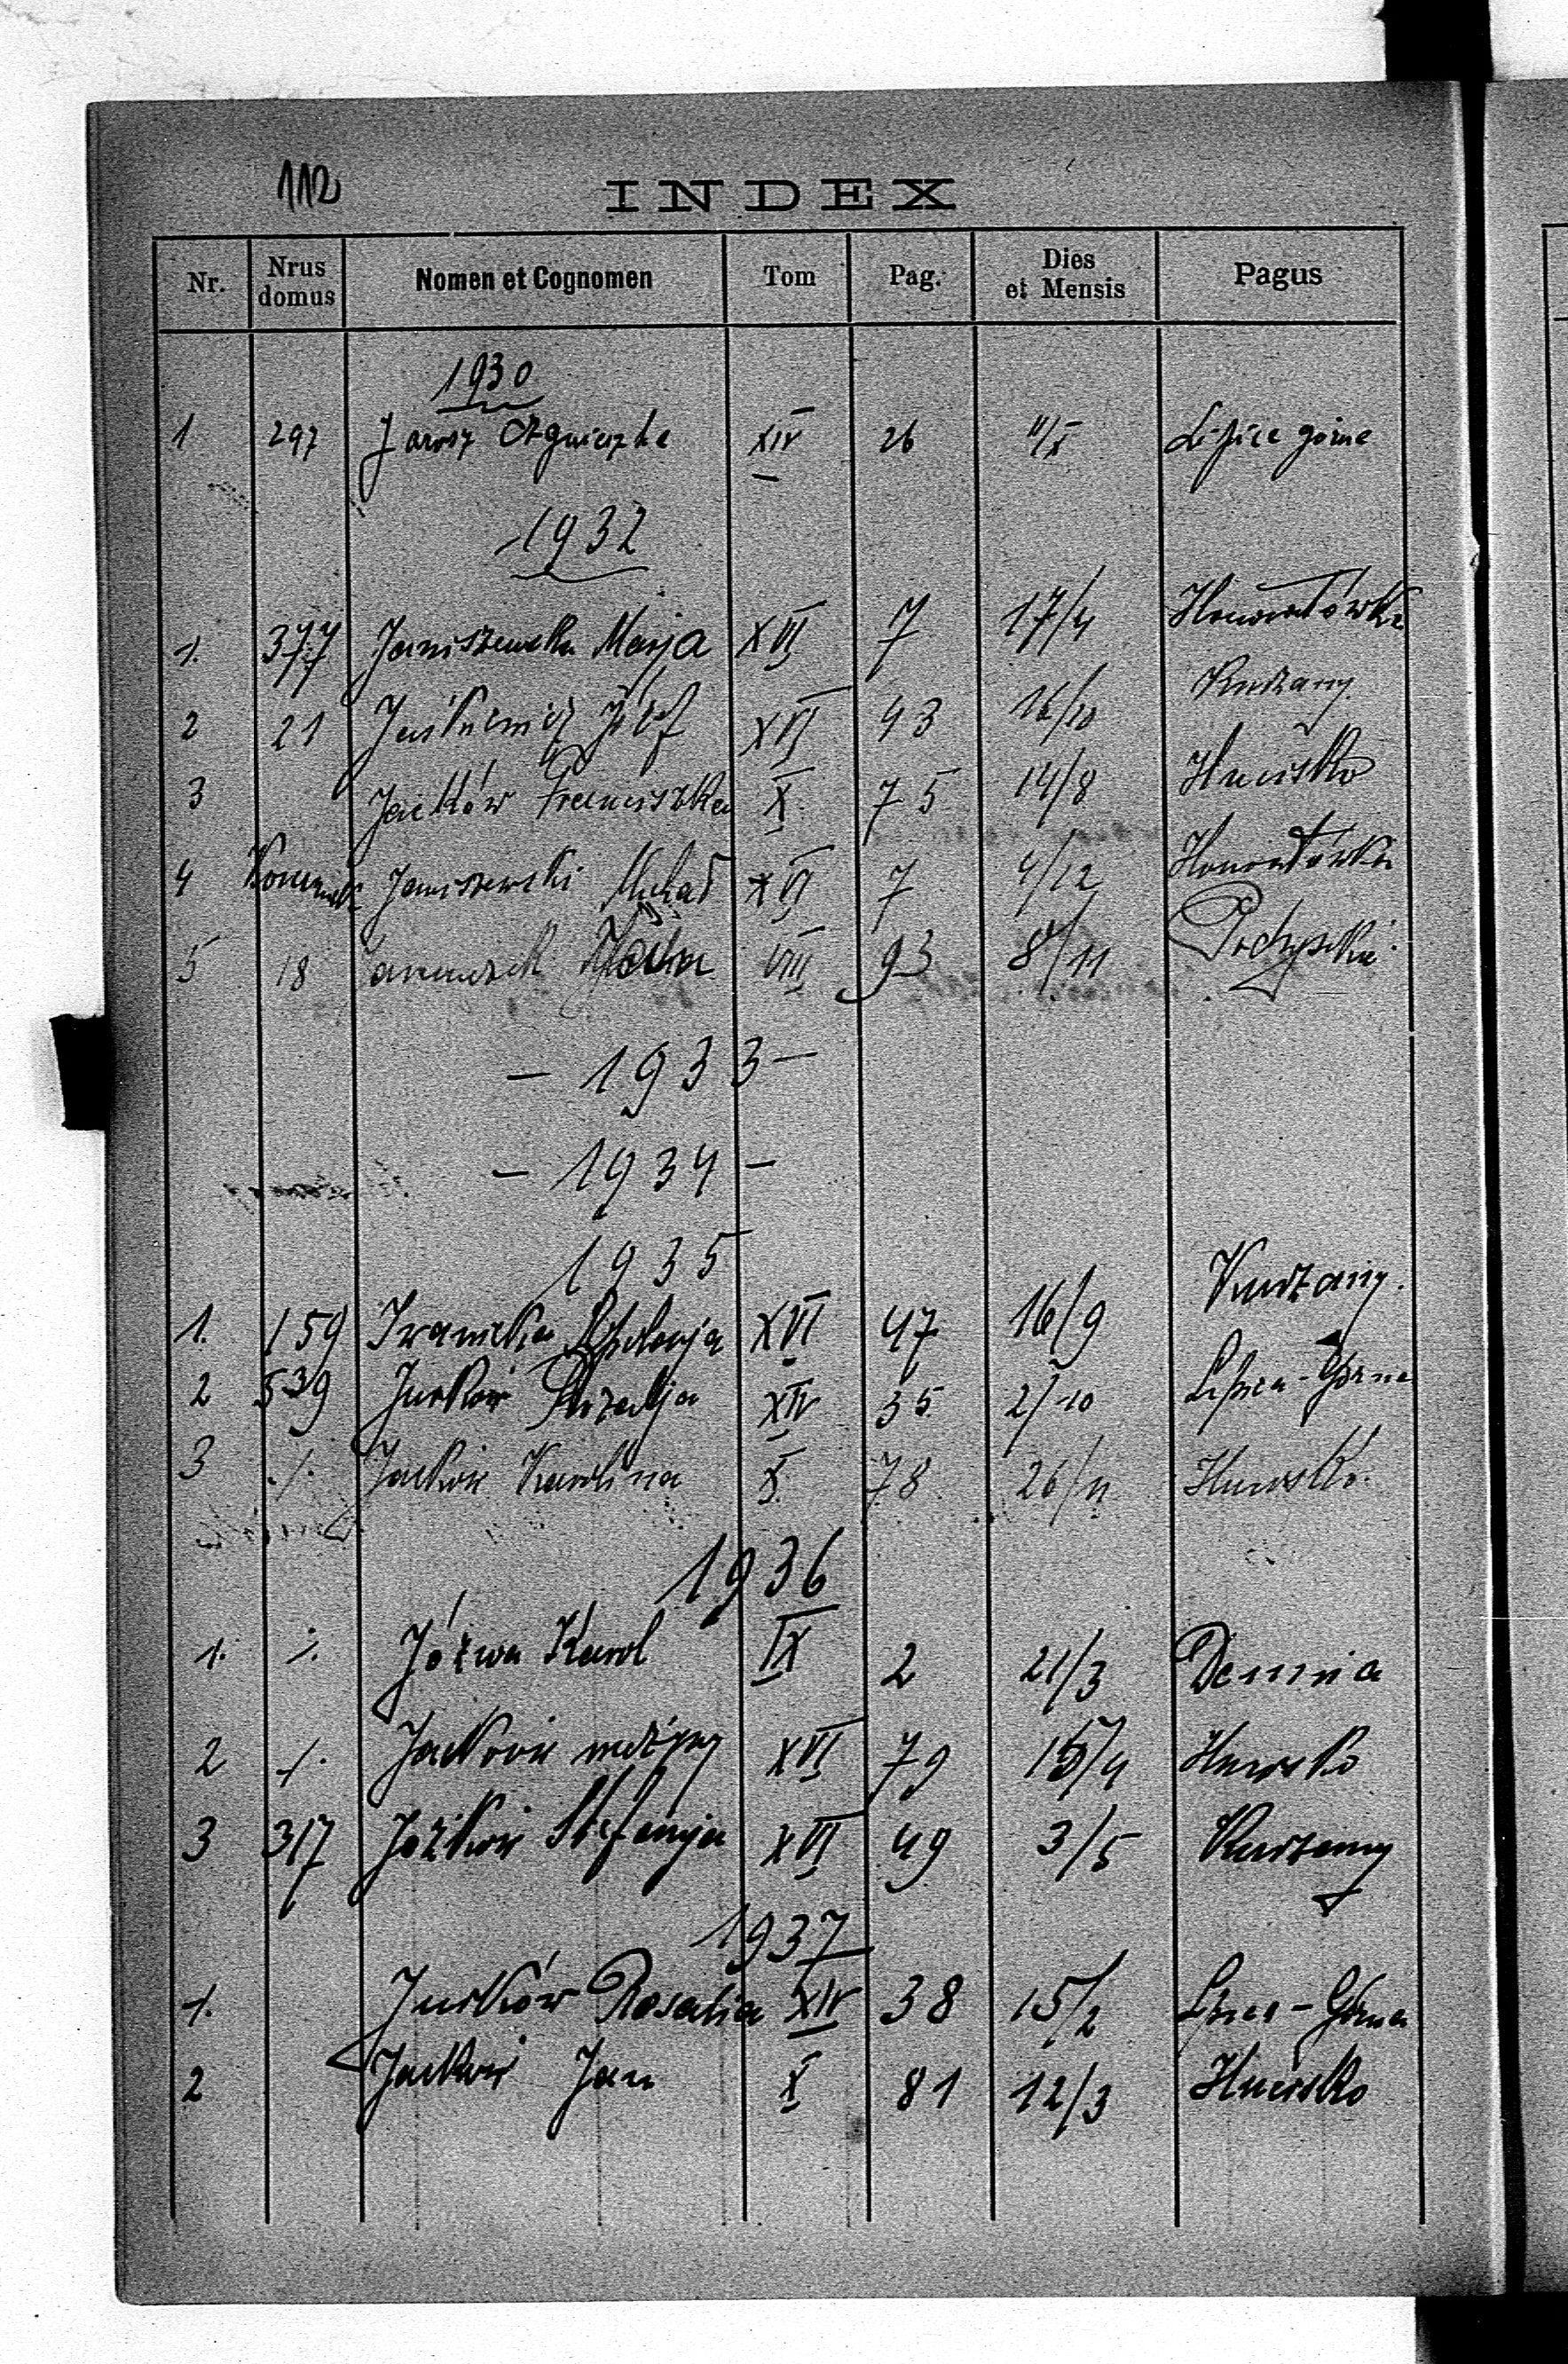 112
INDEX
Nr. Nrus domus Nomen et Cognomen Tom Pag. Dies et Mensis Pagus
1930
1 297 Jarosz Agnieszka XIV 26 11/X Lipice górne
1932
1. 377 Janiszewska Marja XVI 7 17/4 Honoratówka
2 21 Józef XVI 43 16/10 Kurzany
3 Jacków Franciszka X 75 14/8 Hucisko
4 Janiszewski Michał XVI 7 4/12 Honoratówka
5 18 VIII 93 8/11
- 1933 -
- 1934 -
1935
1. 159 Iwanicka XVI 47 16/9 Kurzany.
2 539 Jurków Rozalja XIV 35 2/10 Lipica-Górna
3 ./. Jacków Karolina X 78 26/11 Hucisko.
1936
1. ./. Józwa Karol IX 2 21/3 Demnia
2 ./. Jacków nieżywy XVI 79 15/4 Hucisko
3 317 Jóżków Stefanja XVI 49 3/5 Kurzany
1937
1. Jurków Rosalia XIV 38 15/2 Lipica-Górna
2 Jacków Jan X 81 12/3 Hucisko